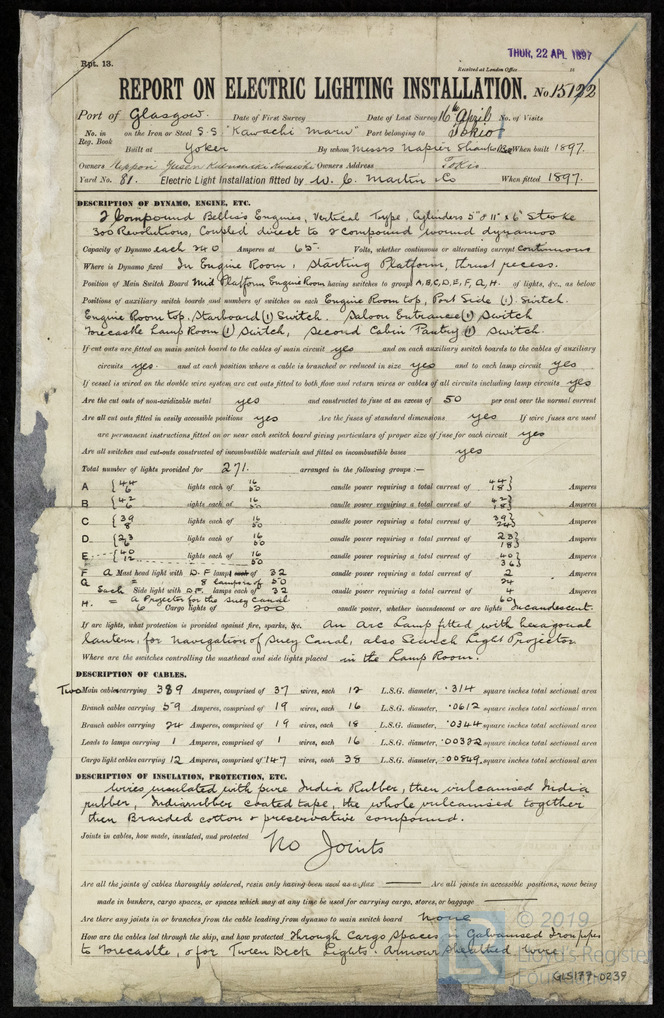 Rpt. 13.
THUR, 22 APL 1897
Received at London Office 18
REPORT ON ELECTRIC LIGHTING INSTALLATION. No 15122
Port of Glasgow. Date of First Survey Date of Last Survey 16th April No. of Visits
No. in Reg. Book on the Iron or Steel S.S. "Kawachi Maru" Part belonging to Tokio
Built at Yoker By whom Messrs Napier Shanks When built 1897.
Owners Nippon Yusen Owners Address Tokio
Yard No. 81. Electric Light Installation fitted by W. C. Martin & Co When fitted 1897.
DESCRIPTION OF DYNAMO, ENGINE, ETC.
2 Compound Belliss Engines, Vertical Type, Cylinders 5" & 11" x 6" Stroke
300 Revolutions, Coupled direct to 2 compound wound dynamos
Capacity of Dynamo each 240 Amperes at 65 Volts, whether continuous or alternating current continuous
Where is Dynamo fixed In Engine Room, Starting Platform, thrust recess.
Position of Main Switch Board Mid Platform Engine Room having switches to groups A, B, C, D, E, F, G, H. of lights, &c., as below
Positions of auxiliary switch boards and numbers of switches on each Engine Room top, Port Side (1) Switch.
Engine Room top, Starboard (1) Switch. Saloon Entrance (1) Switch
Forecastle Lamp Room (1) Switch, Second Cabin Pantry (1) Switch.
If cut outs are fitted on main switch board to the cables of main circuit yes and on each auxiliary switch board to the cables of auxiliary
circuits yes and at each position where a cable is branched or reduced in size yes and to each lamp circuit yes
If vessel is wired on the double wire system are cut outs fitted to both flow and return wires or cables of all circuits including lamp circuits yes
Are the cut outs of non-oxidizable metal yes and constructed to fuse at an excess of 50 per cent over the normal current
Are all cut outs fitted in easily accessible positions yes Are the fuses of standard dimensions yes If wire fuses are used
are permanent instructions fitted on or near each switch board giving particulars of proper size of fuse for each circuit yes
Are all switches and cut-outs constructed of incombustible materials and fitted on incombustible bases yes
Total number of lights provided for 271. arranged in the following groups :—
A {44 6 lights each of 16 50 candle power requiring a total current of 44 18} Amperes
B {42 6 lights each of 16 50 candle power requiring a total current of 42 18} Amperes
C {39 8 lights each of 16 50 candle power requiring a total current of 39 24} Amperes
D {23 6 lights each of 16 50 candle power requiring a total current of 23 18} Amperes
E {40 12 lights each of 16 50 candle power requiring a total current of 40 36} Amperes
F 2 Mast head light with D.F lamps each of 32 candle power requiring a total current of 2 Amperes
G " 8 lamps of 50 24
2 Side light with D.F. lamps each of 32 candle power requiring a total current of 4 Amperes
H. = a Projector for the Suez Canal 60
6 Cargo lights of 200 candle power, whether incandescent or arc lights Incandescent.
If arc lights, what protection is provided against fire, sparks, &c. An arc Lamp fitted with hexagonal
lantern, for navigation of Suez Canal, also Search Light Projector
Where are the switches controlling the masthead and side lights placed in the Lamp Room.
DESCRIPTION OF CABLES.
Two Main cables carrying 389 Amperes, comprised of 37 wires, each 12 L.S.G. diameter, .314 square inches total sectional area
Branch cables carrying 59 Amperes, comprised of 19 wires, each 16 L.S.G. diameter, .0612 square inches total sectional area
Branch cables carrying 24 Amperes, comprised of 19 wires, each 18 L.S.G. diameter, .0344 square inches total sectional area
Leads to lamps carrying 1 Amperes, comprised of 1 wires, each 16 L.S.G. diameter, .00322 square inches total sectional area
Cargo light cables carrying 12 Amperes, comprised of 147 wires, each 38 L.S.G. diameter, .00849 square inches total sectional area
DESCRIPTION OF INSULATION, PROTECTION, ETC.
Wires insulated with pure India Rubber, then vulcanised India
rubber, Indiarubber coated tape, the whole vulcanised together
then Braided cotton & preservative compound.
Joints in cables, how made, insulated, and protected No Joints
Are all the joints of cables thoroughly soldered, resin only having been used as a flux — Are all joints in accessible positions, none being
made in bunkers, cargo spaces, or spaces which may at any time be used for carrying cargo, stores, or baggage —
Are there any joints in or branches from the cable leading from dynamo to main switch board None
How are the cables led through the ship, and how protected Through Cargo Spaces in Galvanised Iron pipes
to Forecastle, & for Tween Deck Lights. Armour sheathed wire.
© 2019
Lloyd's Register
Foundation
GLS177-0239